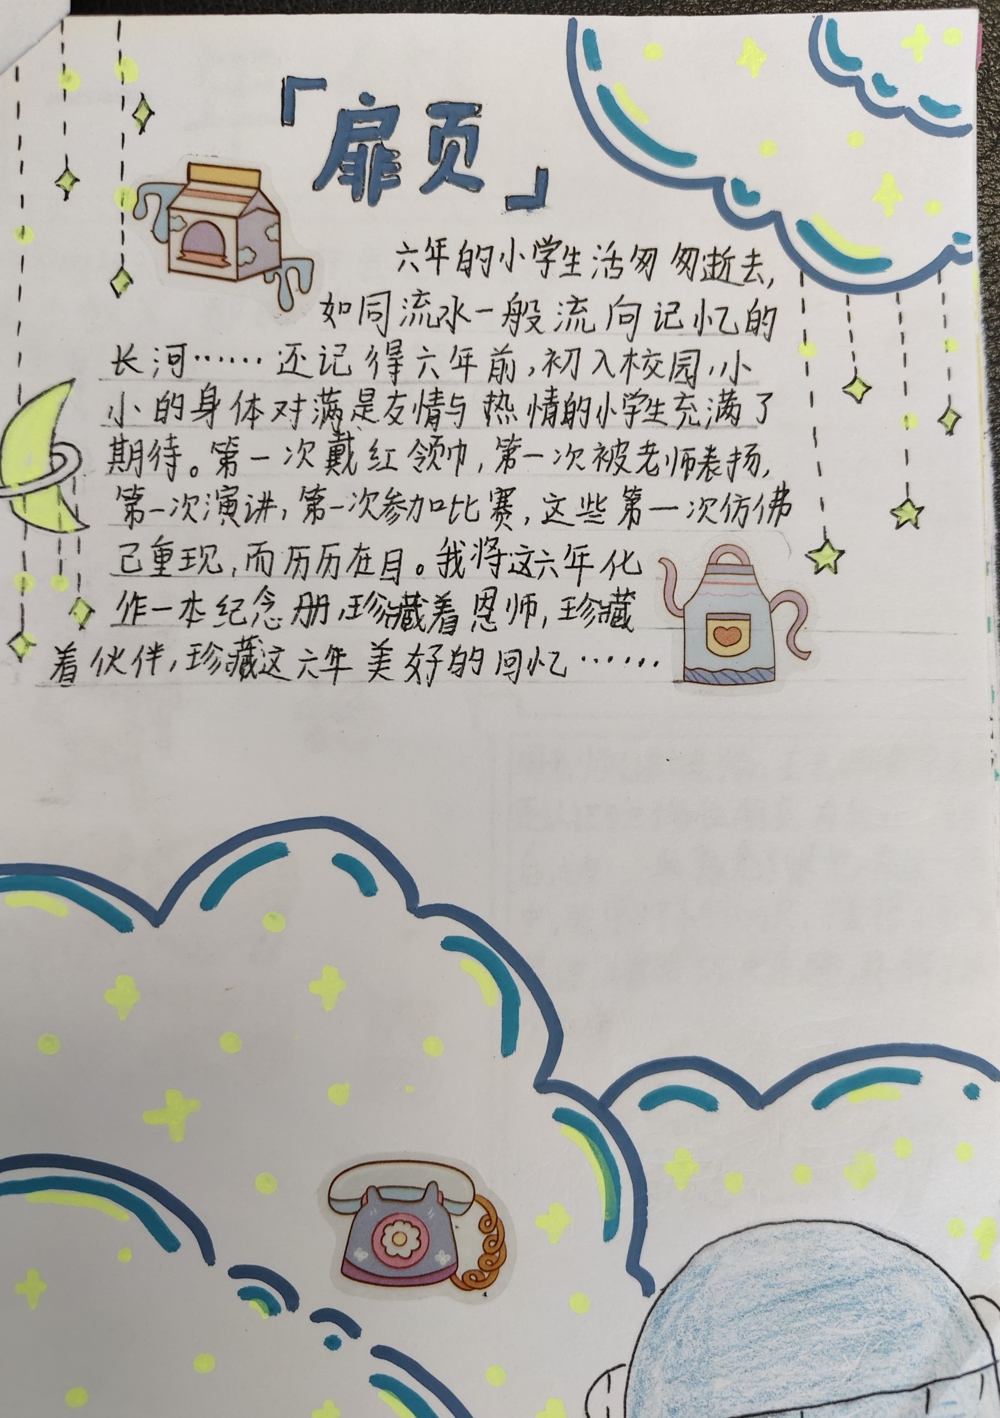 「扉页」
六年的小学生活匆匆逝去,
如同流水一般流向记忆的
长河……还记得六年前,初入校园,小
小的身体对满是友情与热情的小学生充满了
期待。第一次戴红领巾,第一次被老师表扬,
第一次演讲,第一次参加比赛,这些第一次仿佛
已重现,而历历在目。我将这六年化
作一本纪念册,珍藏着恩师,珍藏
着伙伴,珍藏这六年美好的回忆……